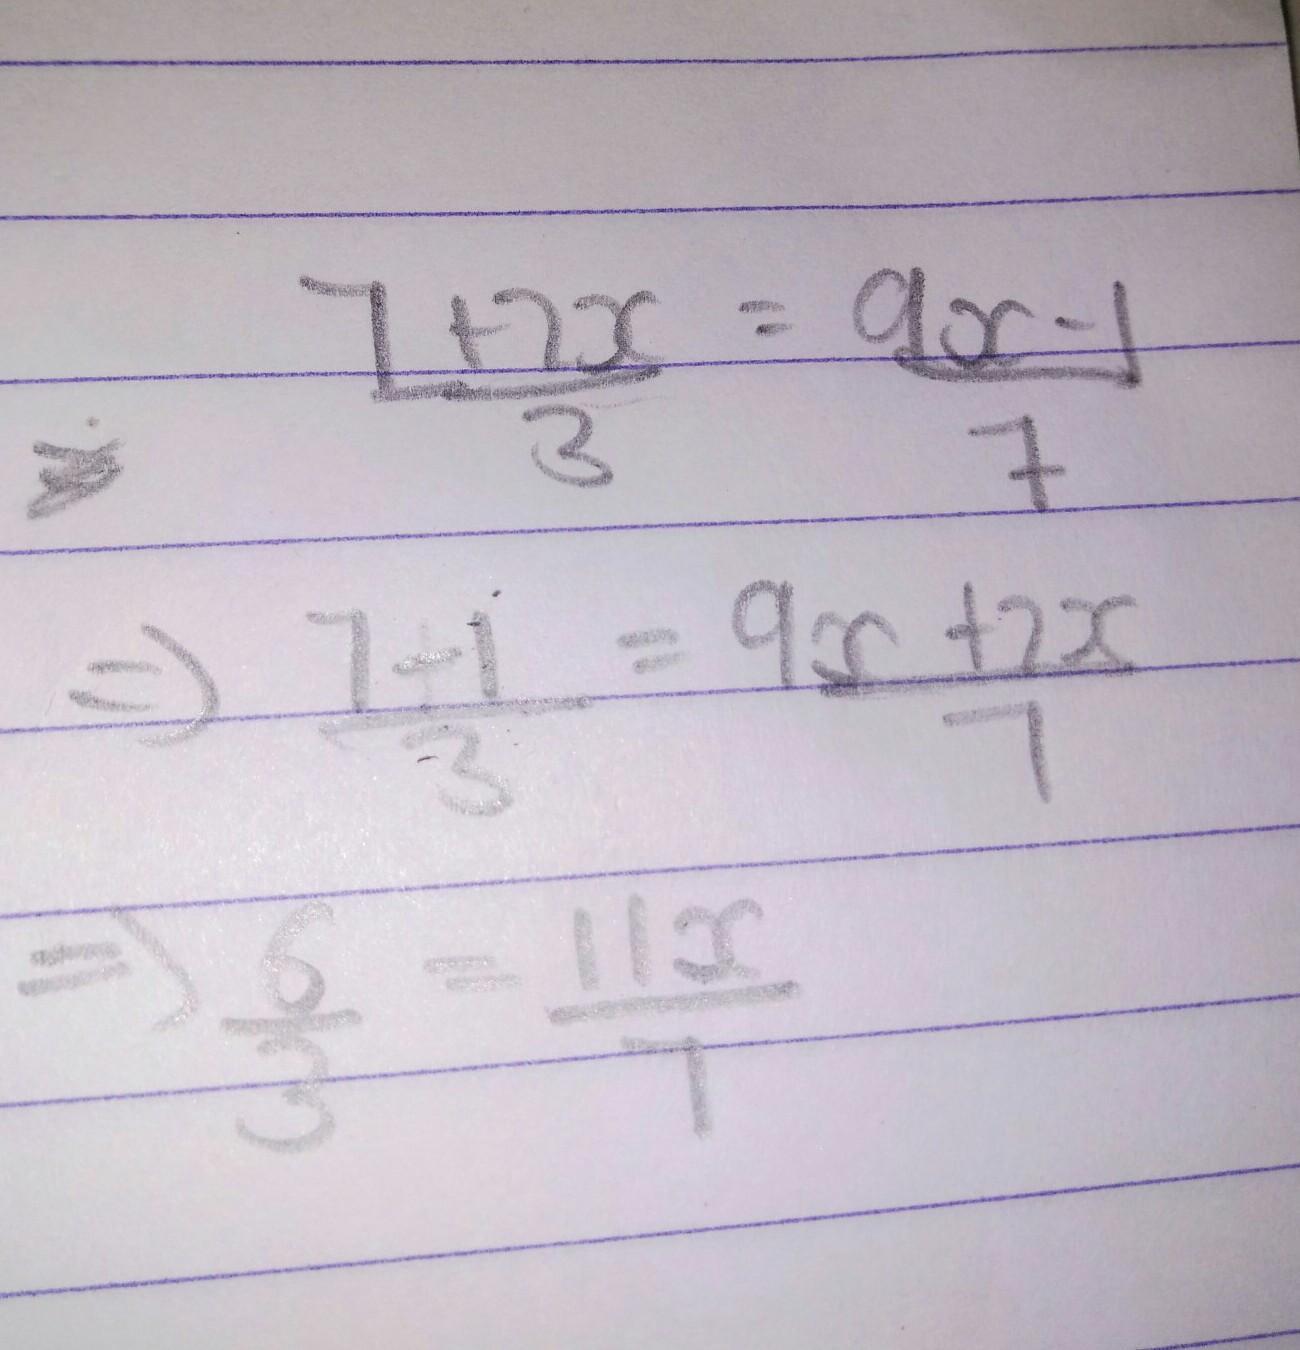 7+2x/3 = 9x-1/7
⇒ 7-1/3 = 9x+2x/7
⇒ 6/3 = 11x/7